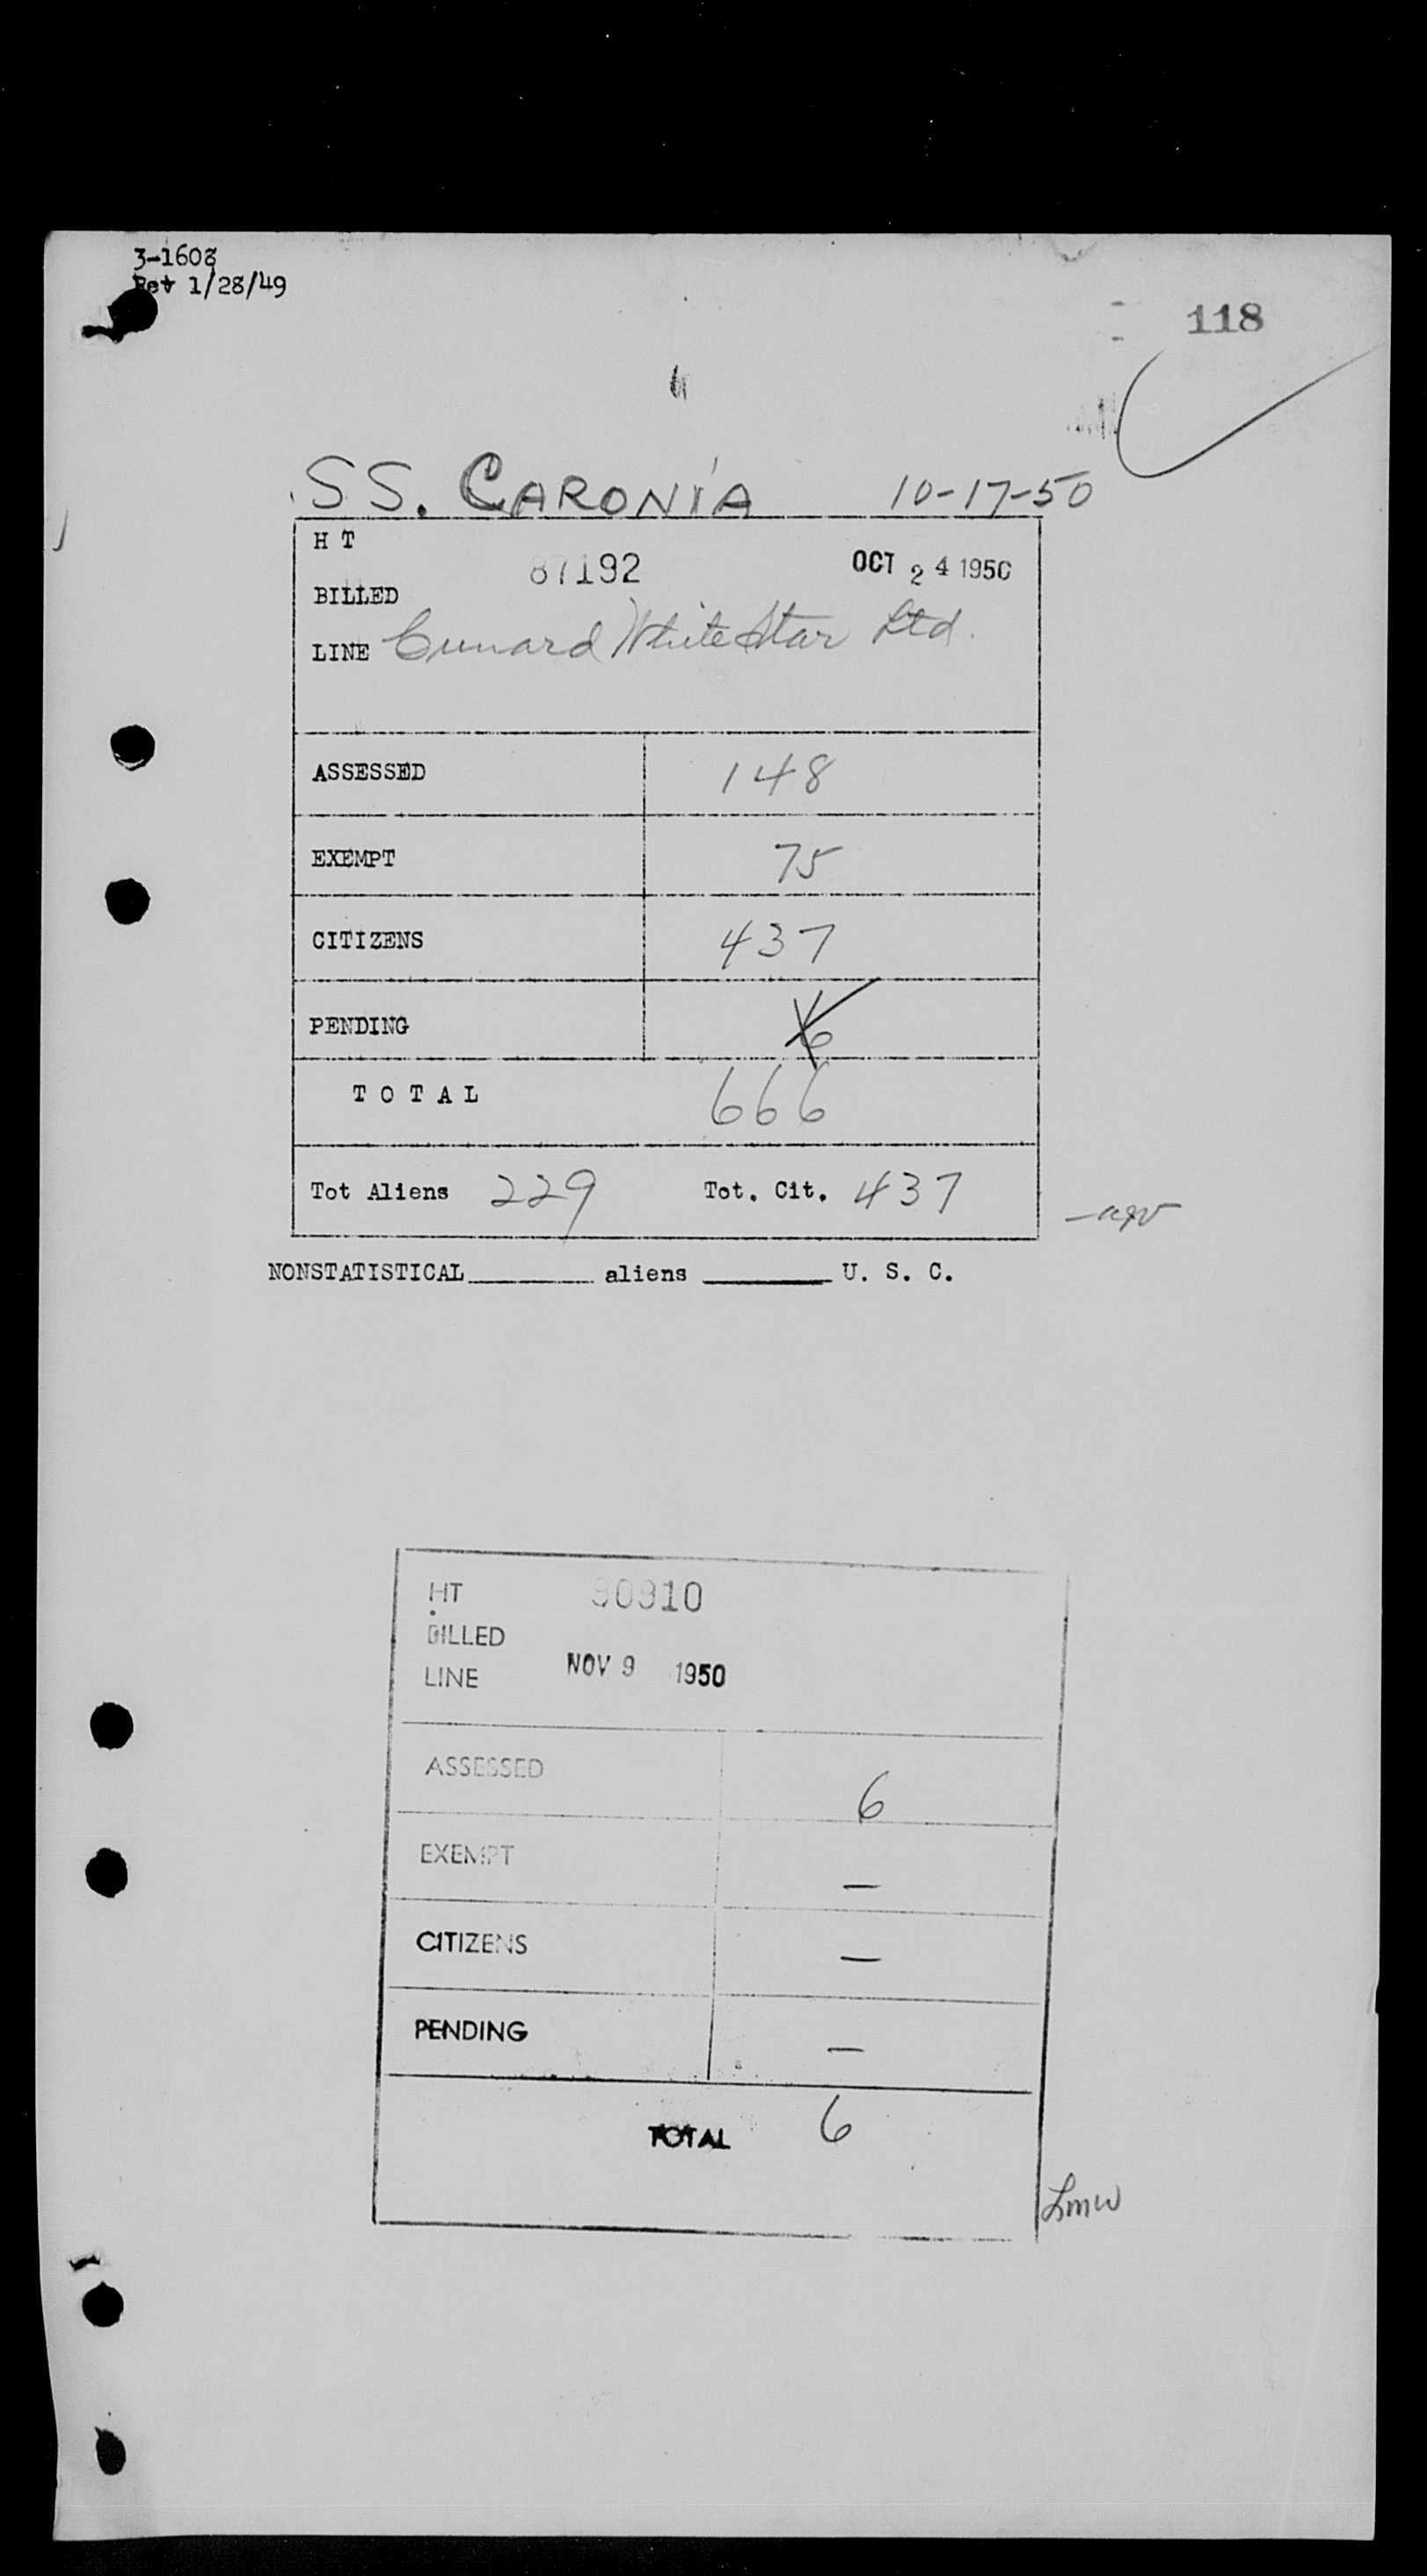 3-1608
Rev 1/28/49
118
SS. CARONIA 10-17-50
H T
87192 OCT 24 1950
BILLED
LINE Cunard White Star Ltd.
ASSESSED 148
EXEMPT 75
CITIZENS 437
PENDING 6
T O T A L 666
Tot Aliens 229 Tot. Cit. 437
NONSTATISTICAL aliens U. S. C.
HT 90910
BILLED
LINE NOV 9 1950
ASSESSED 6
EXEMPT —
CITIZENS —
PENDING —
TOTAL 6
Lmw